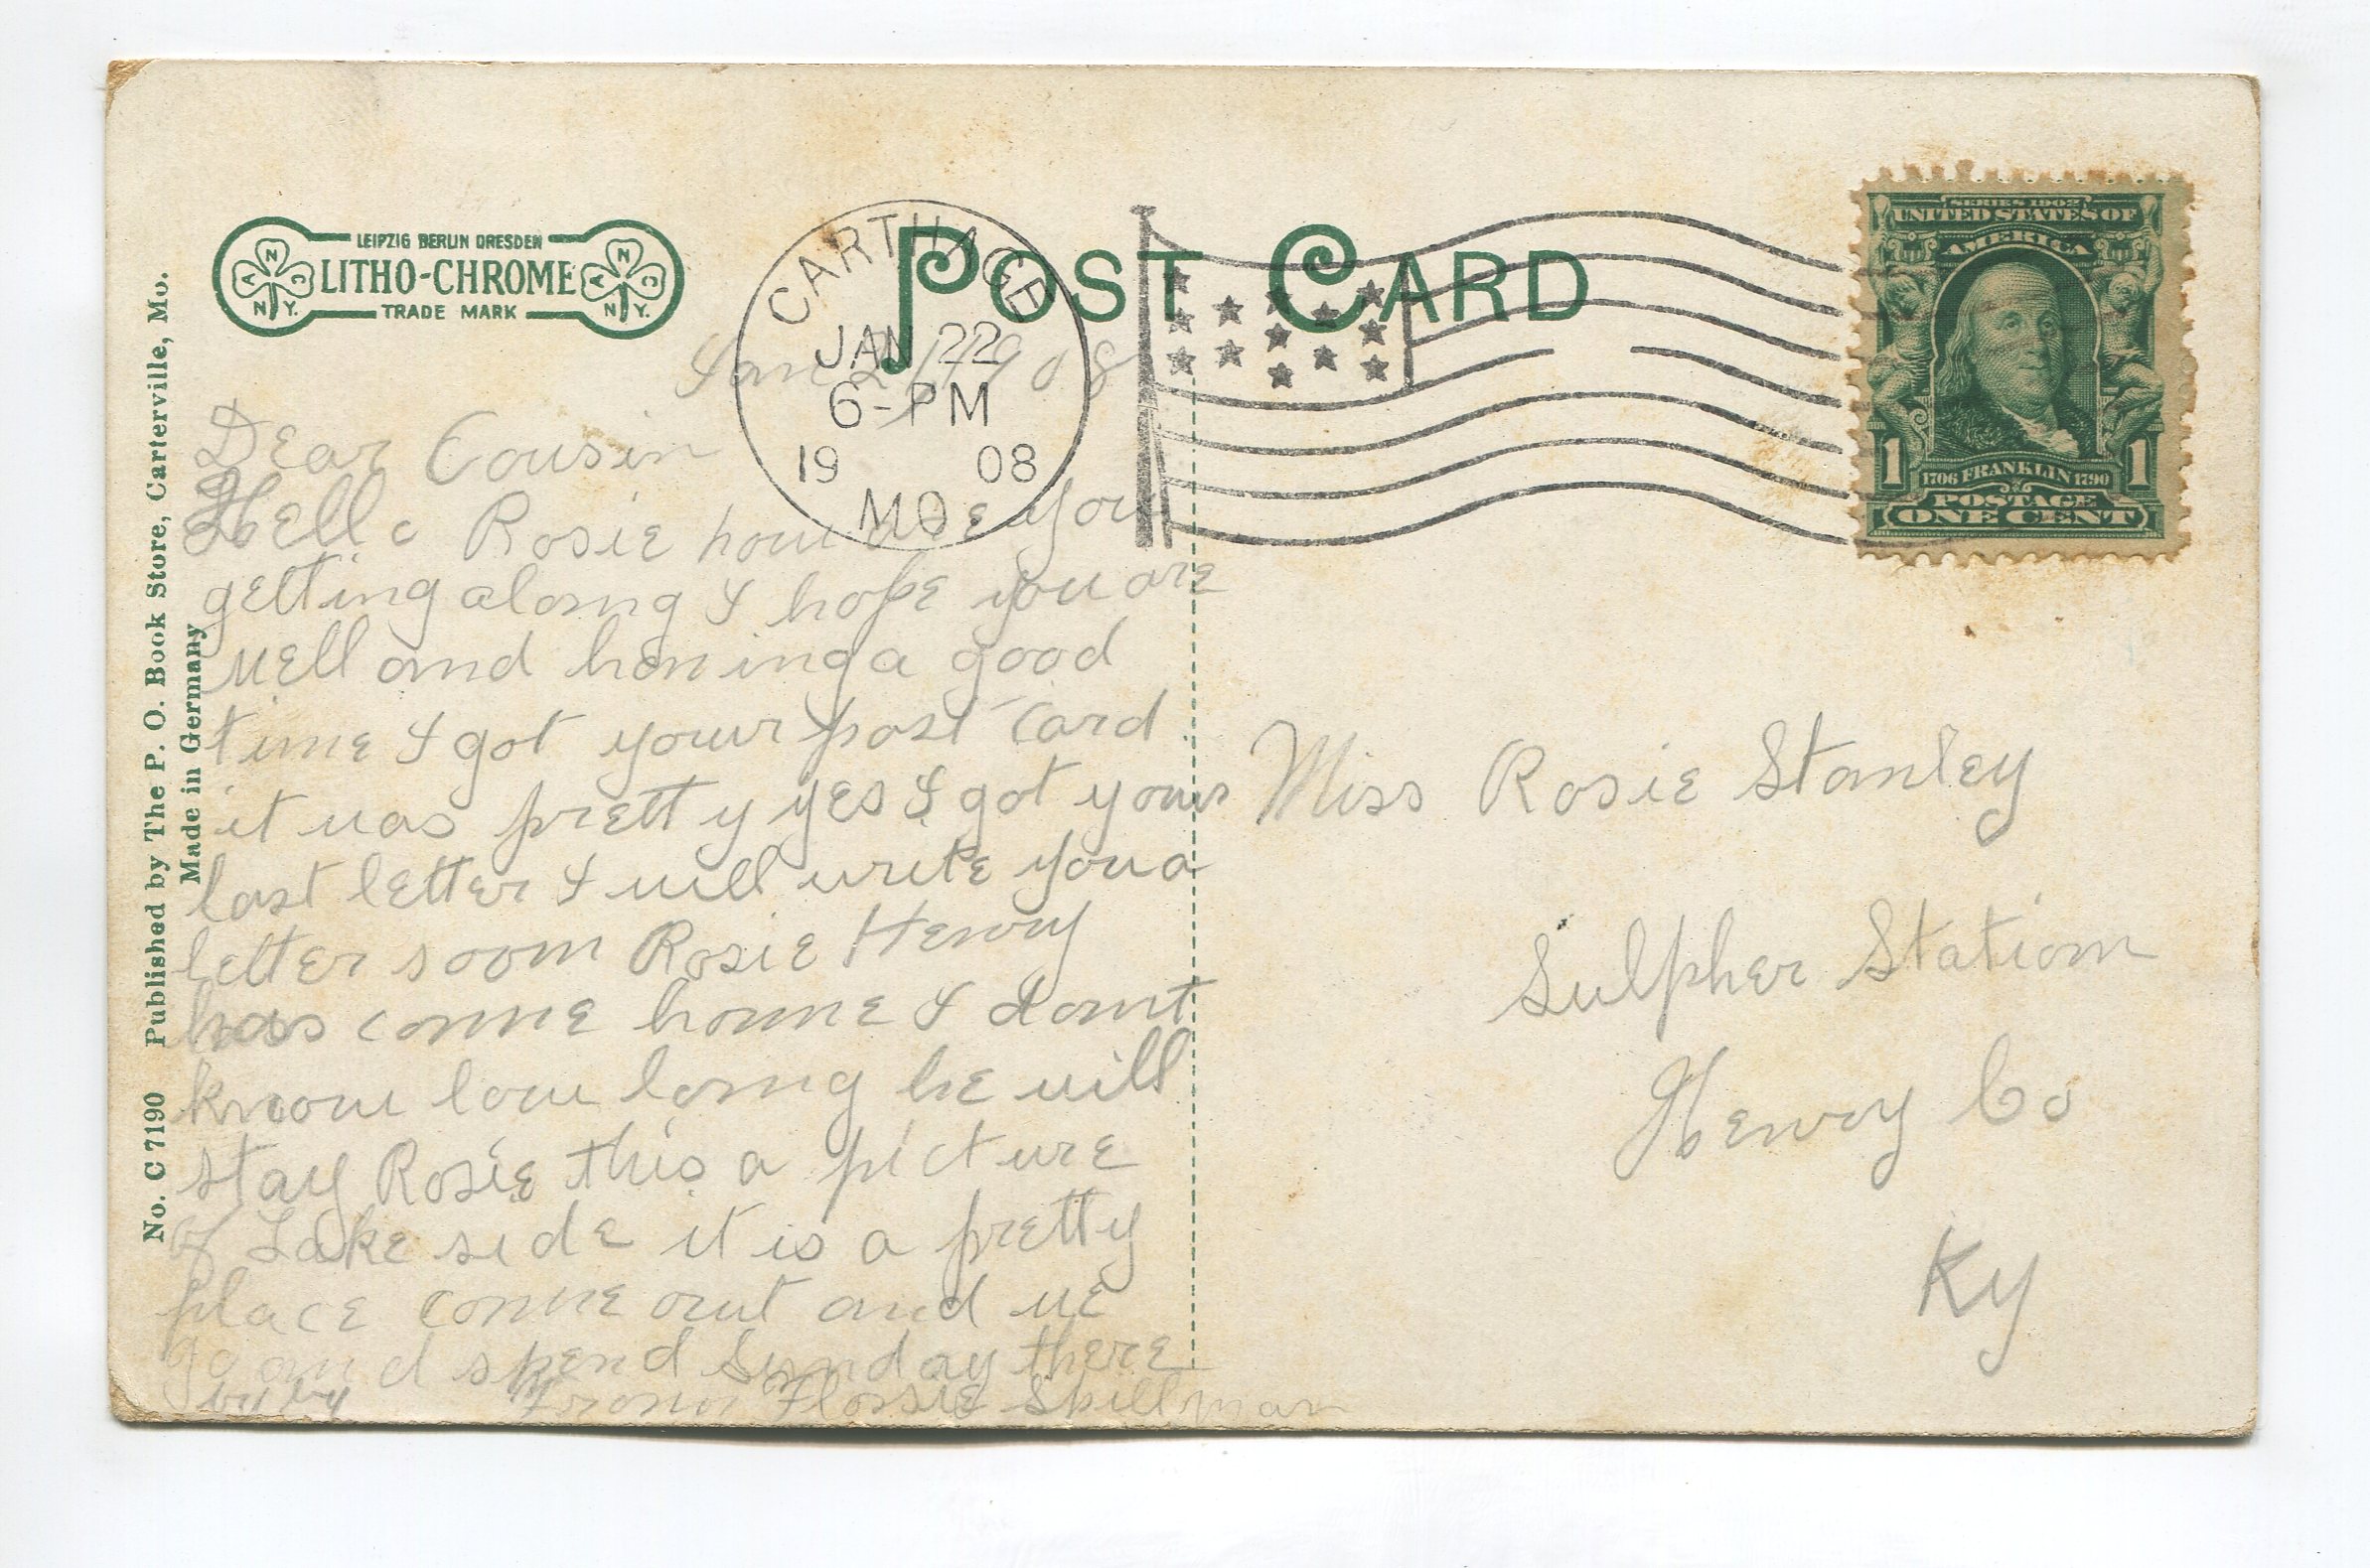 LEIPZIG BERLIN DRESDEN
LITHO-CHROME
TRADE MARK
A N C N.Y.
A N C N.Y.
POST CARD
CARTHAGE
JAN 22
6-PM
19 08
MO
SERIES 1902
UNITED STATES OF
AMERICA
1 1
1706 FRANKLIN 1790
POSTAGE
ONE CENT
No. C 7190 Published by The P. O. Book Store, Carterville, Mo.
Made in Germany
Jan 1908
Dear Cousin
Hello Rosie how are you
getting along I hope you are
well and having a good
time I got your post card
it was pretty yes I got your
last letter I will write you a
letter soon Rosie Henry
has come home I dont
know low long he will
stay Rosie this a picture
of Lake side it is a pretty
place come out and we
go and spend Sunday there
by by From Flossie Skillman
Miss Rosie Stanley
Sulpher Station
Henry Co
Ky